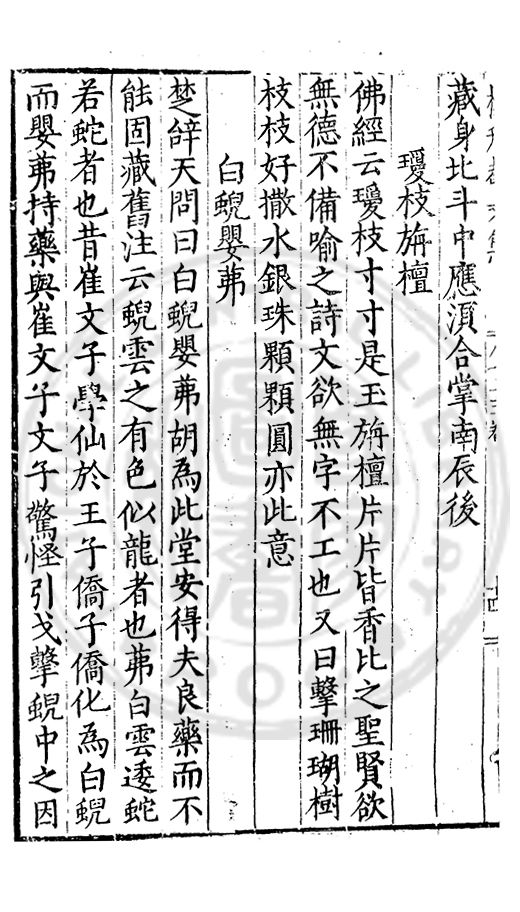 藏身北斗中應湏合掌南辰後
瓊枝旃檀
佛經云瓊枝寸寸是玉旃檀片片皆香比之聖賢欲
無德不備喻之詩文欲無字不工也又曰擊珊瑚樹
枝枝好撒水銀珠顆顆圓亦此意
白蜺嬰茀
楚辝天問曰白蜺嬰茀胡為此堂安得夫良藥而不
能固藏舊注云蜺雲之有色似龍者也茀白雲逶蛇
若蛇者也昔崔文子學仙於王子僑子僑化為白蜺
而嬰茀持藥與崔文子文子驚怪引戈擊蜺中之因